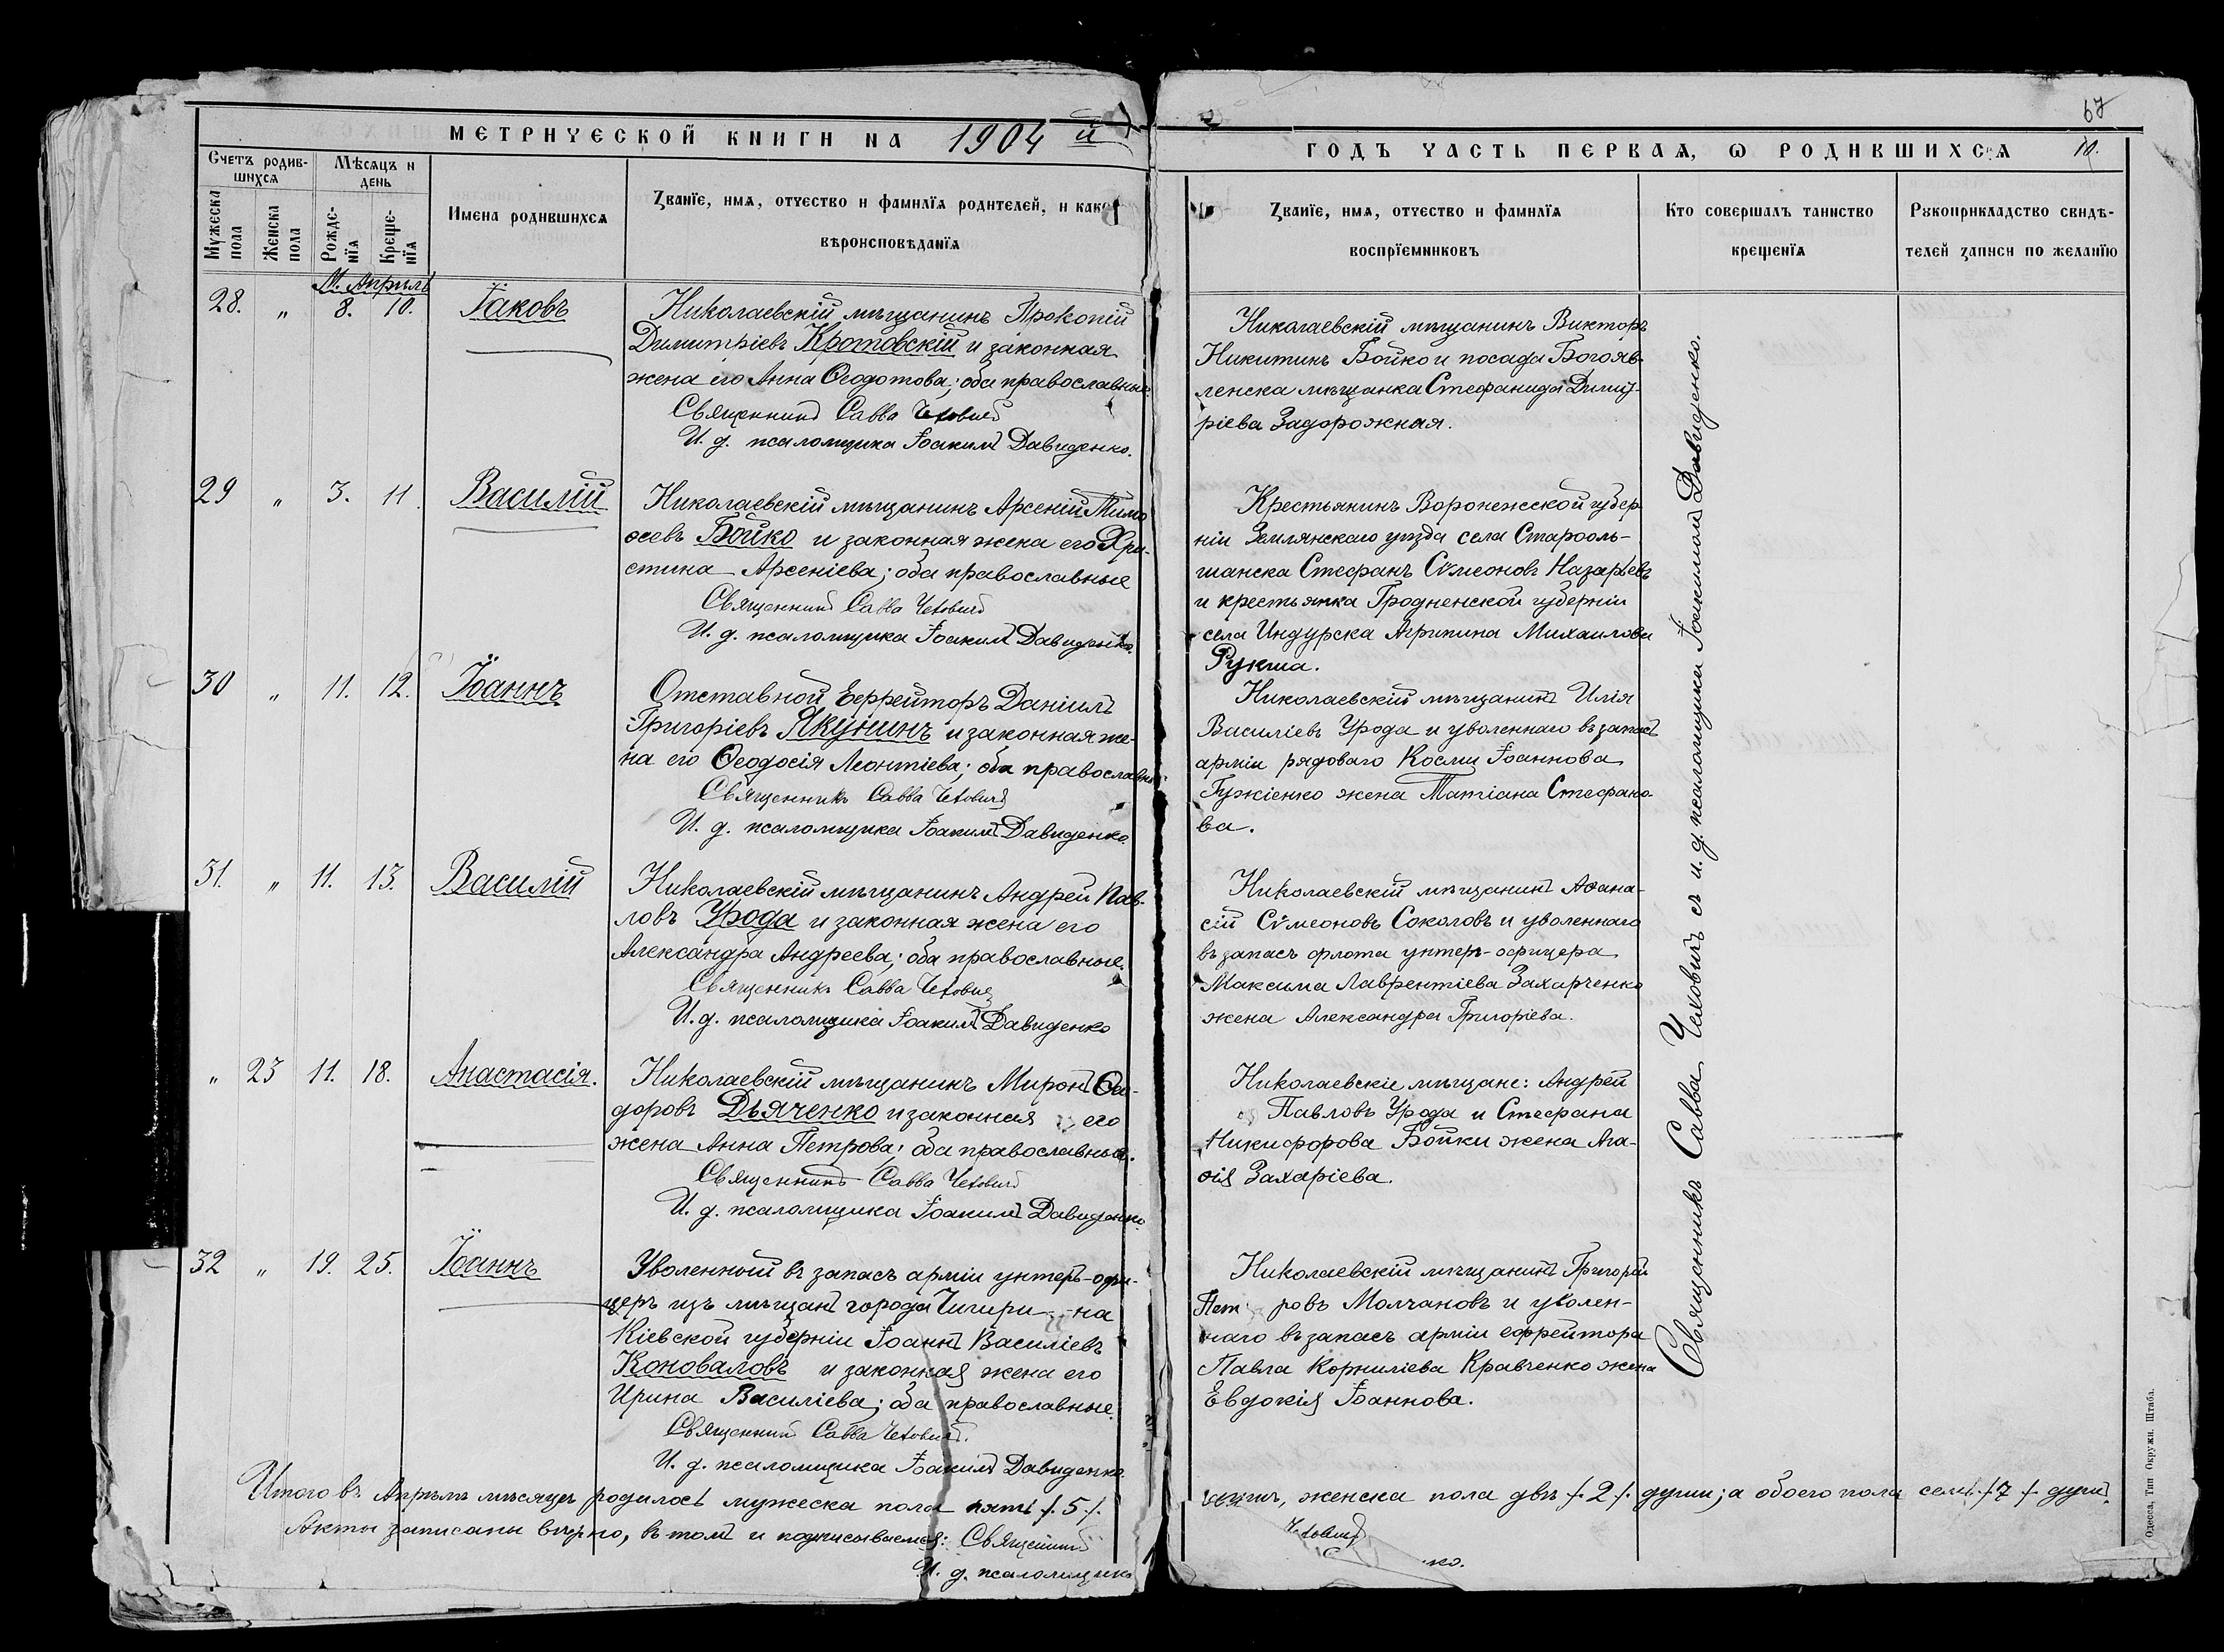 МЕТРИЧЕСКОЙ КНИГИ НА 1904 й
Счетъ родив-
шихся
Мѣсяцъ и
день
Мужеска
пола
Женска
пола
Рожде-
нїя
Креще-
нїя
Имена родившихся
Званїе, имя, отчество и фамилїя родителей, и како
вѣроисповѣданїя
М. Апрѣль
28. " 8. 10. Іаковъ
Николаевскій мѣщанинъ Прокопій
Димитріевъ Кротовскій и законная
жена его Анна Ѳеодотова; оба православные
Священникъ Савва Чеховичъ
И. д. псаломщика Іоакимъ Давиденко.
29 " 3. 11. Василій
Николаевскій мѣщанинъ Арсеній Тимо
ѳеевъ Бойко и законная жена его Хри-
стина Арсеніева; оба православные
Священникъ Савва Чеховичъ
И. д. псаломщика Іоакимъ Давиденко.
30 " 11. 12. Іоаннъ
Отставной Еффейторъ Даніилъ
Григоріевъ Якунинъ и законная же-
на его Ѳеодосія Леонтіева; оба православные
Священникъ Савва Чеховичъ
И. д. псаломщика Іоакимъ Давиденко.
31. " 11. 13. Василій
Николаевскій мѣщанинъ Андрей Пав-
ловъ Урода и законная жена его
Александра Андреева; оба православные.
Священникъ Савва Чеховичъ
И. д. псаломщика Іоакимъ Давиденко
" 23 11. 18. Анастасія.
Николаевскій мѣщанинъ Миронъ Ѳео-
доровъ Дьяченко и законная его
жена Анна Петрова; оба православные.
Священникъ Савва Чеховичъ
И. д. псаломщика Іоакимъ Давиденко.
32 " 19. 25. Іоаннъ
Уволенный въ запасъ арміи унтеръ-офи-
церъ изъ мѣщанъ города Чигири-на
Кіевской губерніи Іоаннъ Василіевъ
Коноваловъ и законная жена его
Ирина Василіева; оба православные.
Священникъ Савва Чеховичъ.
И. д. псаломщика Іоакимъ Давиденко.
Итого въ Апрѣлѣ мѣсяцѣ родилось мужеска пола пять /. 5 /.
Акты записаны вѣрно, въ томъ и подписываемся: Священникъ
И. д. псаломщика
67
10.
ГОДЪ ЧАСТЬ ПЕРВАЯ, Ѡ РОДИВШИХСЯ
Званїе, имя, отчество и фамилїя
воспрїемниковъ
Кто совершалъ таинство
крещенїя
Рукоприкладство свидѣ-
телей записи по желанїю
Николаевскій мѣщанинъ Викторъ
Никитинъ Бойко и посада Богояв-
ленска мѣщанка Стефанида Димит-
ріева Задорожная.
Крестьянинъ Воронежской губер
ніи Землянскаго уѣзда села Старооль-
шанска Стефанъ Сѵмеоновъ Назарьевъ
и крестьянка Гродненской губерніи
села Индурска Агрипина Михаилова
Рукша.
Николаевскій мѣщанинъ Илія
Василіевъ Урода и уволеннаго въ запасъ
арміи рядоваго Космы Іоаннова
Гужіенко жена Татіана Стефано-
ва.
Николаевскій мѣщанинъ Аѳана-
сій Сѵмеоновъ Соколовъ и уволеннаго
въ запасъ флота унтеръ-офицера
Максима Лаврентіева Захарченко
жена Александра Григоріева.
Николаевскіе мѣщане: Андрей
Павловъ Урода и Стефана
Никифорова Бойки жена Ага-
ѳія Захаріева.
Николаевскій мѣщанинъ Григорій
Пет ровъ Молчановъ и уволен-
наго въ запасъ арміи ефрейтора
Павла Корниліева Кравченко жена
Евдокія Іоаннова.
Священникъ Савва Чеховичъ съ и. д. псаломщика Іоакимомъ Давиденко.
женска пола двѣ /. 2 /. души; а обоего пола семь /. 7 /. душъ.
Чеховичъ
ко.
Одесса, Тип Окружн. Штаба.